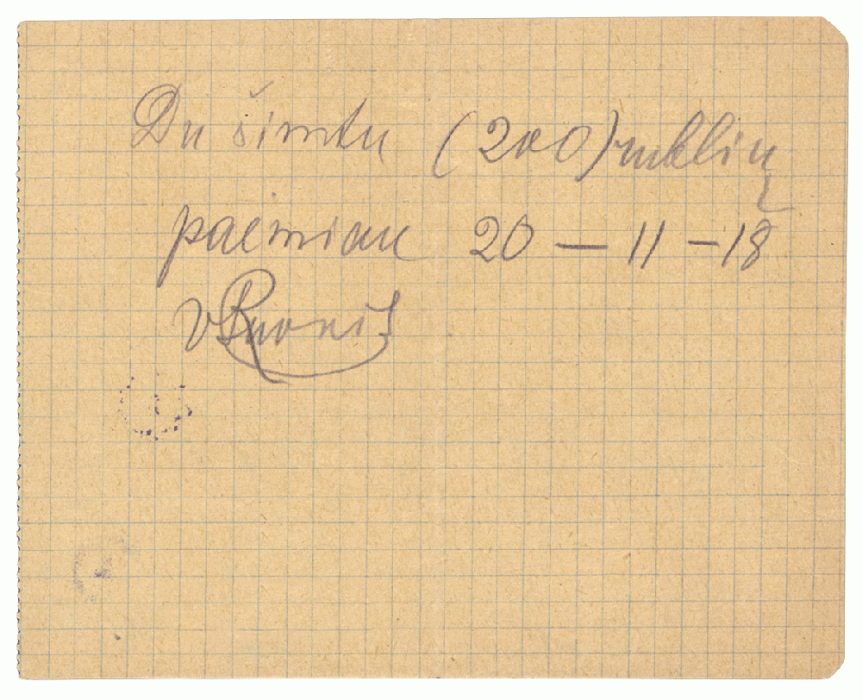 Du šimtu (200) rublių
paemiau 20 — 11 — 18